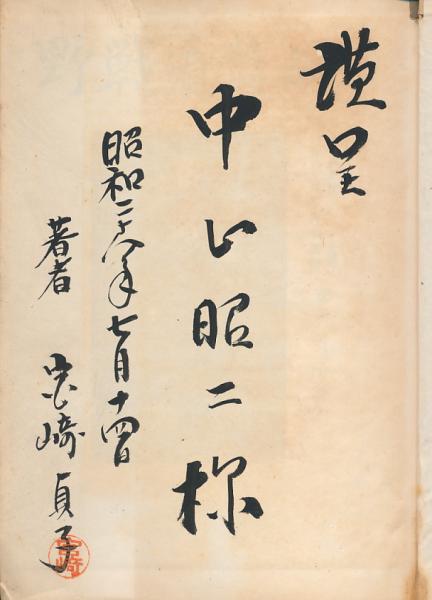 謹呈
中山昭二様
昭和二十八年七月十四日
著者 宮崎貞子
宮崎